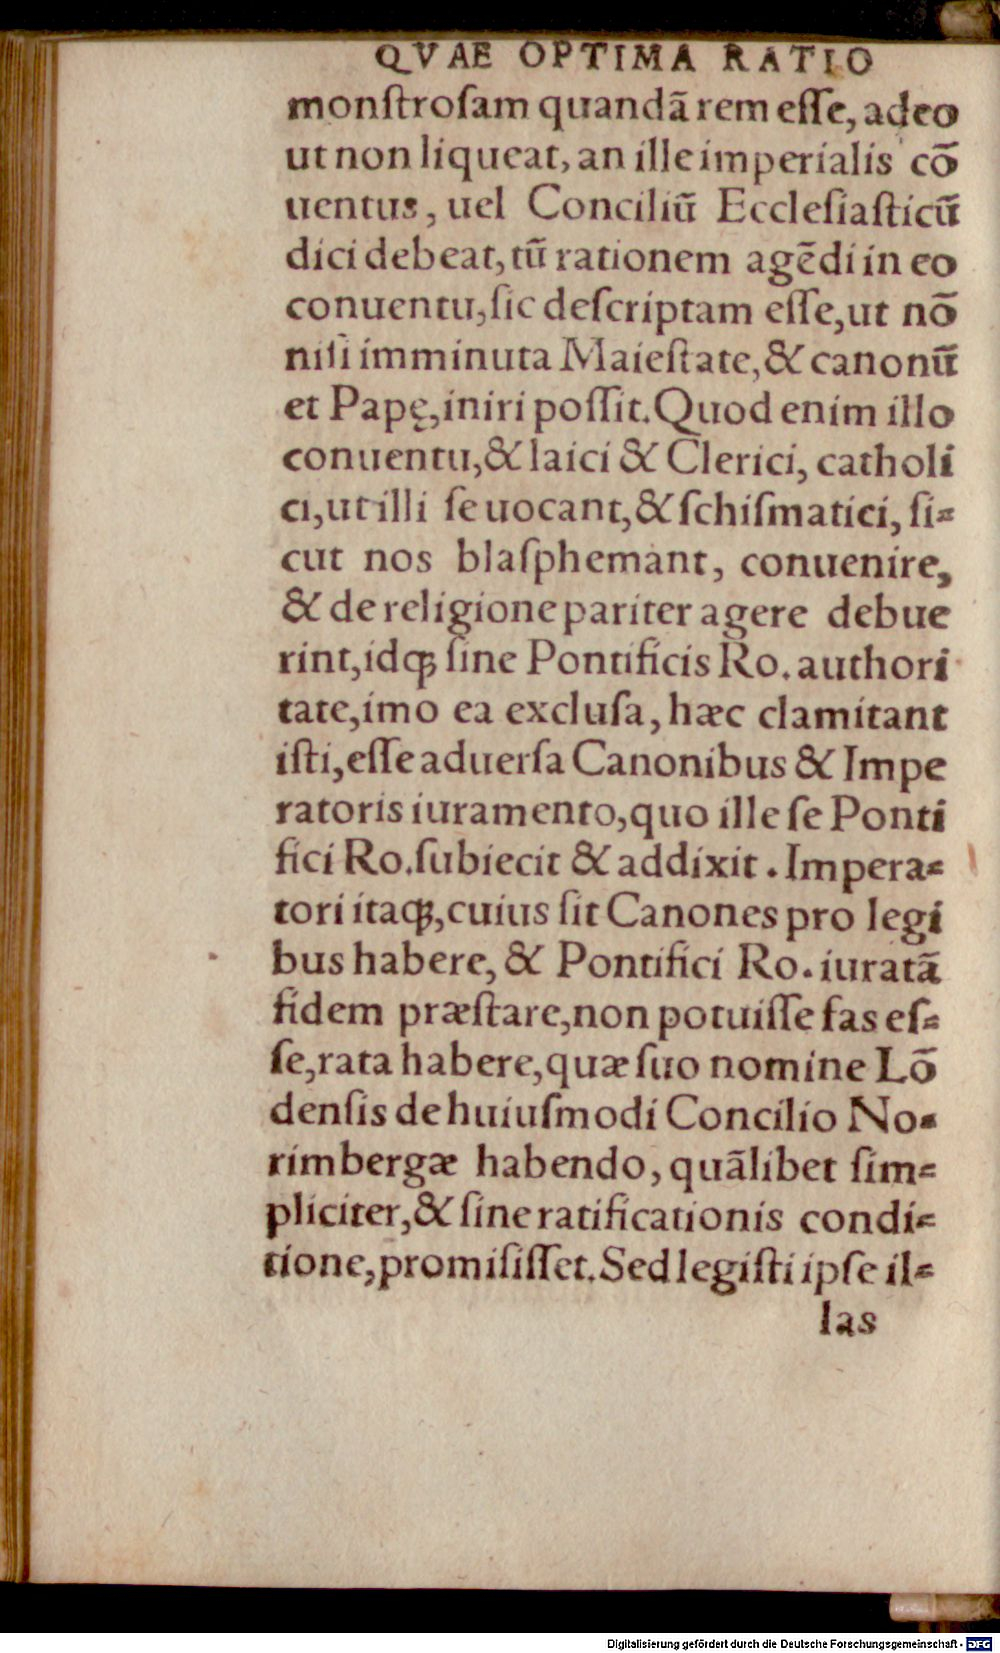 QVAE OPTIMA RATIO
monſtroſam quandā rem eſſe, adeo
ut non liqueat, an ille imperialis cō
uentus, uel Conciliū Eccleſiaſticū
dici debeat, tū rationem agēdi in eo
conuentu, ſic deſcriptam eſſe, ut nō
niſi imminuta Maieſtate, & canonū
et Papę, iniri poſſit. Quod enim illo
conuentu, & laici & Clerici, catholi
ci, ut illi ſe uocant, & ſchiſmatici, ſi⸗
cut nos blaſphemant, conuenire,
& de religione pariter agere debue
rint, idqꝫ ſine Pontificis Ro. authori
tate, imo ea excluſa, hæc clamitant
iſti, eſſe aduerſa Canonibus & Impe
ratoris iuramento, quo ille ſe Ponti
fici Ro. ſubiecit & addixit. Impera⸗
tori itaqꝫ, cuius ſit Canones pro legi
bus habere, & Pontifici Ro. iuratā
fidem præſtare, non potuiſſe fas eſ⸗
ſe, rata habere, quæ ſuo nomine Lō
denſis de huiuſmodi Concilio No⸗
rimbergæ habendo, quālibet ſim⸗
pliciter, & ſine ratificationis condi⸗
tione, promiſiſſet. Sed legiſti ipſe il⸗
las
Digitalisierung gefördert durch die Deutsche Forschungsgemeinschaft - DFG